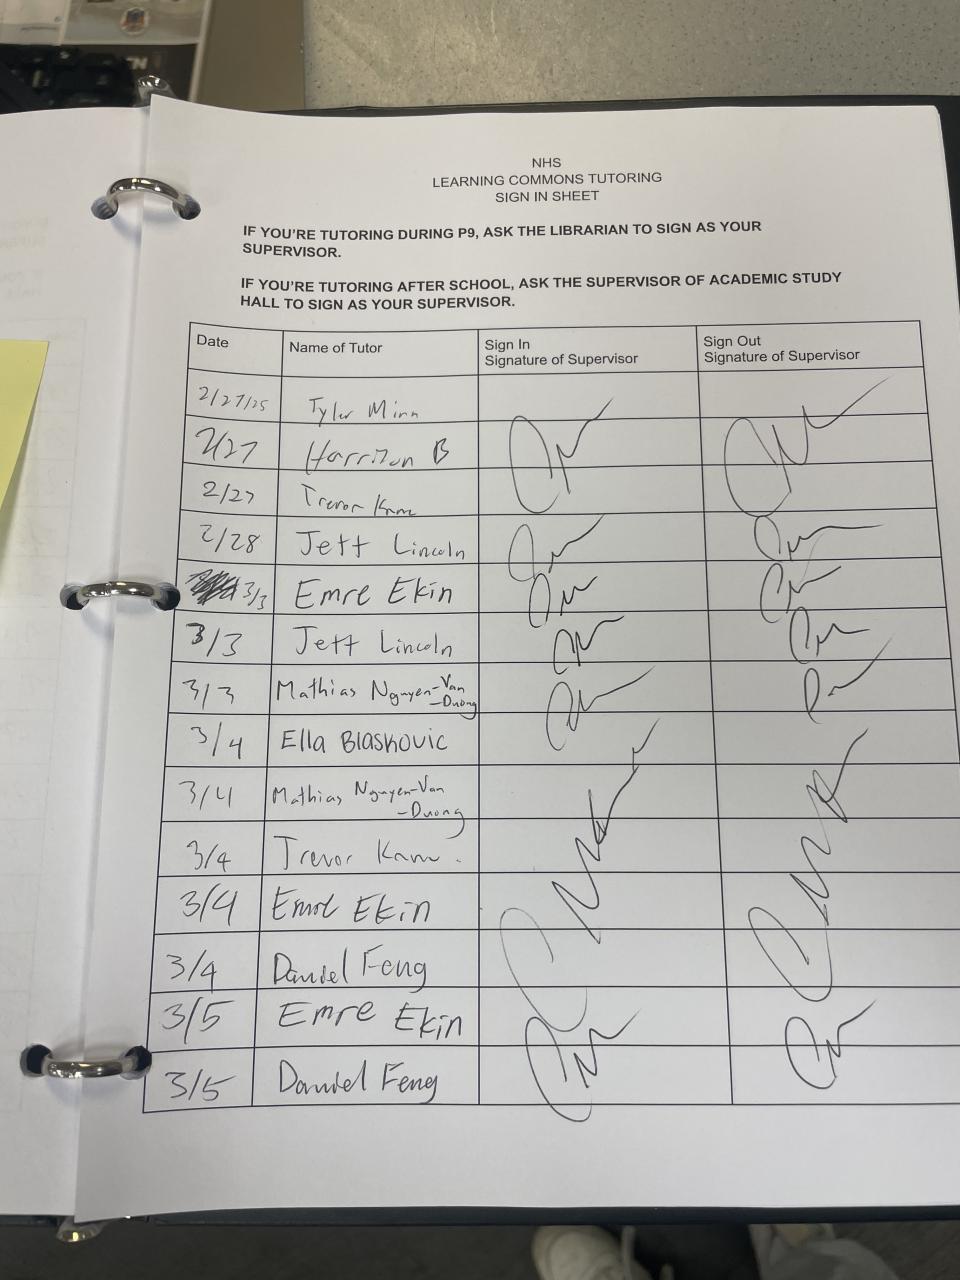 NHS
LEARNING COMMONS TUTORING
SIGN IN SHEET
IF YOU'RE TUTORING DURING P9, ASK THE LIBRARIAN TO SIGN AS YOUR
SUPERVISOR.
IF YOU'RE TUTORING AFTER SCHOOL, ASK THE SUPERVISOR OF ACADEMIC STUDY
HALL TO SIGN AS YOUR SUPERVISOR.
Date Name of Tutor Sign In Sign Out
Signature of Supervisor Signature of Supervisor
2/27/25 Tyler Minn
2/27 Harrison B
2/27 Trevor Kam
2/28 Jett Lincoln
3/3 Emre Ekin
3/3 Jett Lincoln
3/3 Mathias Nguyen-Van
-Duong
3/4 Ella Blaskovic
3/4 Mathias Nguyen-Van
-Duong
3/4 Trevor Kam
3/4 Emre Ekin
3/4 Daniel Feng
3/5 Emre Ekin
3/5 Daniel Feng